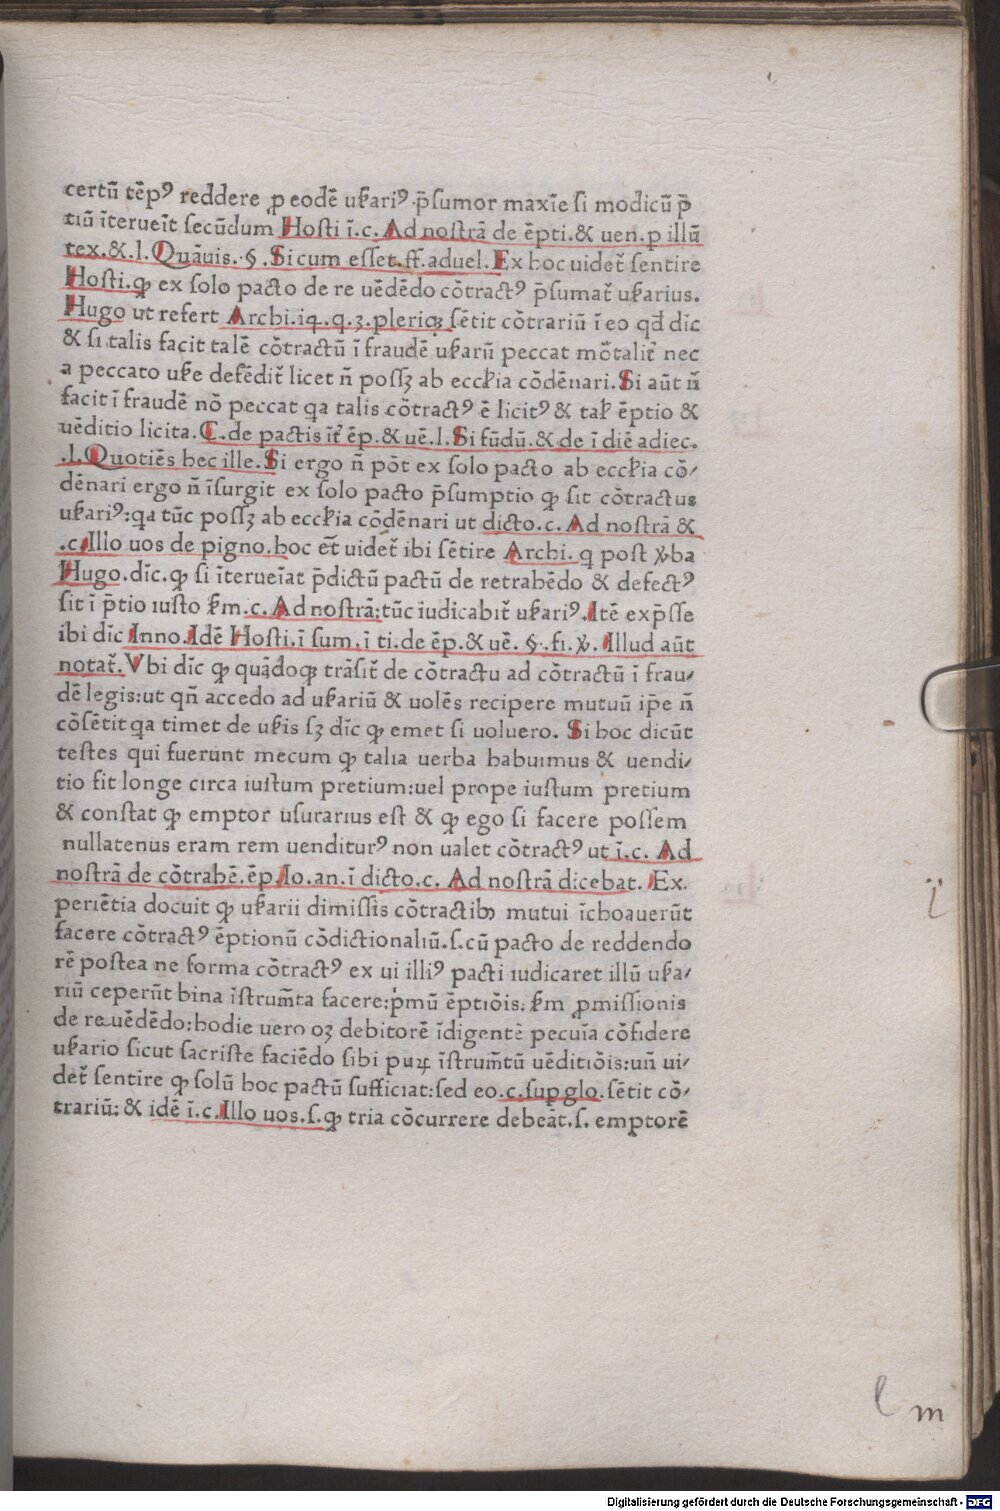 certũ tẽpꝰ reddere ꝓ eodẽ uẜariꝰ p̃sumor maxĩe si modicũ p̃
tiũ ĩterueĩt secũdum Hosti ĩ.c. Ad nostrã de ẽpti.& uen.ꝑ illũ
tex.&.l.Quãuis.§.Si cum esset.ff.ad uel.Ex hoc uidet̃ sentire
Hosti.ꝙ ex solo pacto de re uẽdẽdo cõtractꝰ p̃sumat̃ uẜarius.
Hugo ut refert Archi.i4.q.3.pleriqꝫ sẽtit cõtrariũ ĩ eo qđ dic̃
& si talis facit talẽ cõtractũ ĩ fraudẽ uẜarũ peccat mõtalit̃ nec
a peccato uẜe defẽdit̃ licet ñ possꝫ ab eccl̃ia cõdẽnari.Si aũt ñ
facit ĩ fraudẽ nõ peccat qa talis cõtractꝰ ẽ licitꝰ & tal̃ ẽptio &
uẽditio licita.C.de pactis it̃ ẽp.& uẽ.l.Si fũdũ.& de ĩ diẽ adiec.
.l.Quotiẽs hec ille.Si ergo ñ põt ex solo pacto ab eccl̃ia cõ/
dẽnari ergo ñ ĩsurgit ex solo pacto p̃sumptio ꝙ sit cõtractus
uẜariꝰ:qa tũc possꝫ ab eccl̃ia cõdẽnari ut dicto.c.Ad nostrã &
.c.Illo uos de pigno.hoc et̃ uidet̃ ibi sẽtire Archi.q post ꝟba
Hugo.dic̃.ꝙ si ĩterueĩat p̃dictũ pactũ de retrahẽdo & defectꝰ
sit ĩ p̃tio iusto ẜm.c.Ad nostrã:tũc iudicabit̃ uẜariꝰ.Itẽ exp̃sse
ibi dic̃ Inno.Idẽ Hosti.ĩ sum.ĩ ti.de ẽp.& uẽ.§.fi.ꝟ.Illud aũt
notat̃.Vbi dic̃ ꝙ quãdoqꝫ trãsit̃ de cõtractu ad cõtractũ ĩ frau/
dẽ legis:ut qñ accedo ad uẜariũ & uolẽs recipere mutuũ ip̃e ñ
cõsẽtit qa timet de uẜis sꝫ dic̃ ꝙ emet si uoluero.Si hoc dicũt
testes qui fuerunt mecum ꝙ talia uerba habuimus & uendi/
tio fit longe circa iustum pretium:uel prope iustum pretium
& constat ꝙ emptor usurarius est & ꝙ ego si facere possem
nullatenus eram rem uenditurꝰ non ualet cõtractꝰ ut ĩ.c. Ad
nostrã de cõtrahẽ.ẽp.Io.an.ĩ dicto.c. Ad nostrã dicebat. Ex.
periẽtia docuit ꝙ uẜarii dimissis cõtractibꝫ mutui ĩchoauerũt
facere cõtractꝰ ẽptionũ cõdictionaliũ.s.cũ pacto de reddendo
rẽ postea ne forma cõtractꝰ ex ui illiꝰ pacti iudicaret illũ uẜa/
riũ ceperũt bina ĩstrum̃ta facere:p̃mũ ẽptiõis:ẜm ꝓmissionis
de reuẽdẽdo:hodie uero oꝫ debitorẽ ĩdigentẽ pecuĩa cõfidere
uẜario sicut sacriste faciẽdo sibi puꝝ ĩstrum̃tũ uẽditiõis:uñ ui/
det̃ sentire ꝙ solũ hoc pactũ sufficiat:sed eo.c.suꝑ glo.sẽtit cõ/
trariũ:& idẽ ĩ.c.Illo uos.s.ꝙ tria cõcurrere debeãt.s. emptorẽ
l m
Digitalisierung gefördert durch die Deutsche Forschungsgemeinschaft - DFG